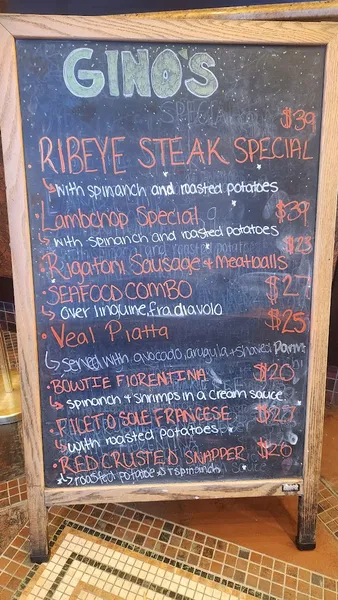 GINO'S
SPECIAL
$39
RIBEYE STEAK SPECIAL
with spinanch and roasted potatoes
Lambchop Special $39
with spinanch and roasted potatoes
$23
Rigatoni Sausage + Meatballs
SEAFOOD COMBO $27
over linguine, fra diavolo
Veal Piatta $25
served with avocado, arugula, + shaved Parm
BOWTIE FIORENTINA $20
spinanch + shrimps in a cream sauce
FILET O SOLE FRANCESE $22
with roasted potatoes
RED CRUSTED SNAPPER $26
roasted potatoes + spinanch